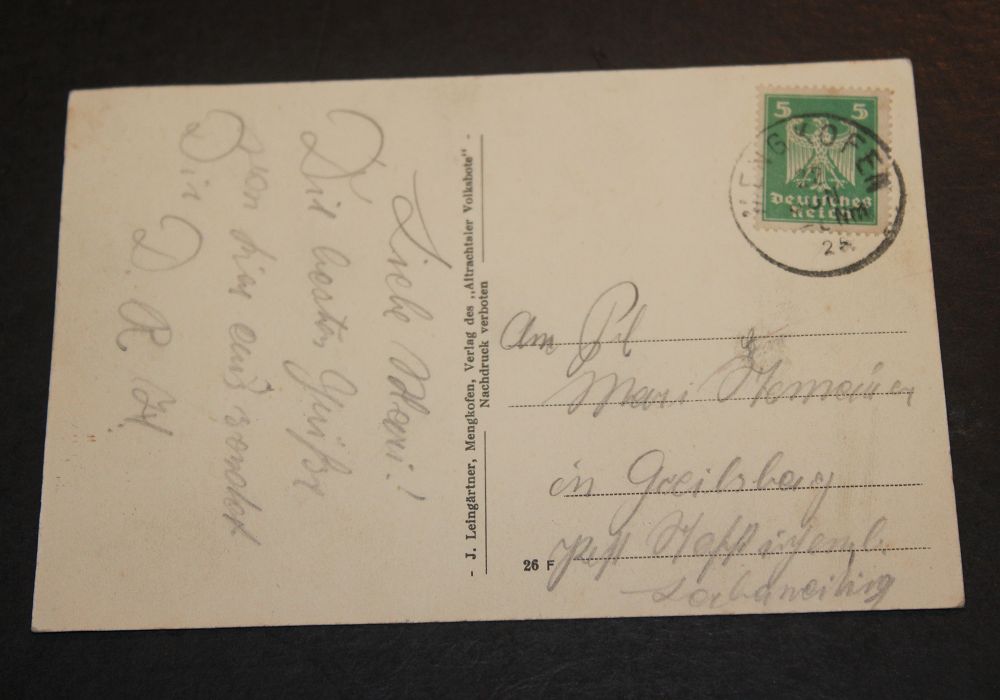 Liebe Mari!
Die besten Grüße
von hier aus sendet
Dir D. R. H.
- J. Leingärtner, Mengkofen, Verlag des „Aitrachtaler Volksbote" -
Nachdruck verboten
5 5
Deutsches
Reich
MENGKOFEN
25
An Frl
Mari
in
Post
26 F